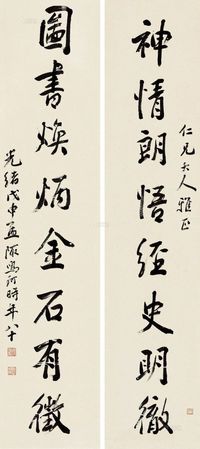 仁兄大人雅正
神情朗悟經史明徹
圖書煥炳金石有徵
光緒戊申孟陬鳴珂時年八十